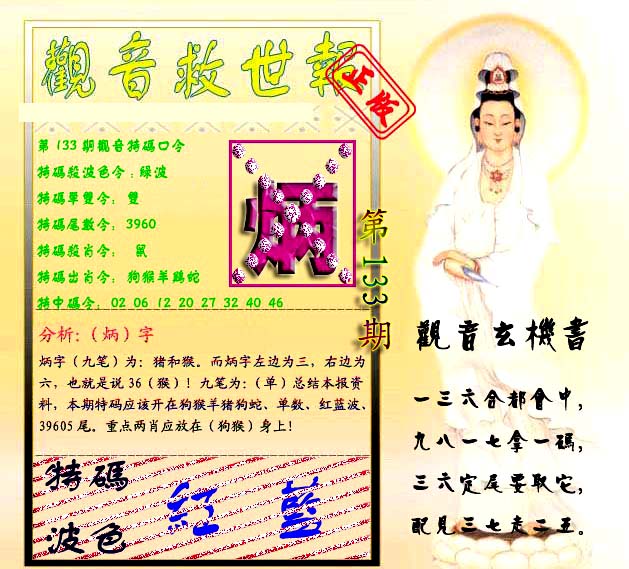 觀音救世報
正版
第133期觀音特碼口令
特碼殺波色令:綠波
特碼單雙令: 雙
特碼尾數令: 3960
特碼殺肖令: 鼠
特碼出肖令: 狗猴羊鷄蛇
特中碼令: 02 06 12 20 27 32 40 46
炳
第133期
分析:(炳)字
炳字(九笔)为:猪和猴。而炳字左边为三,右边为
六,也就是说36(猴)!九笔为:(单)总结本报资
料,本期特码应该开在狗猴羊猪狗蛇、单数、红蓝波、
39605尾。重点两肖应放在(狗猴)身上!
特碼
波色
紅 藍
觀音玄機書
一三六合都會中,
九八一七拿一碼,
三六定尾要取它,
配見三七走二五。